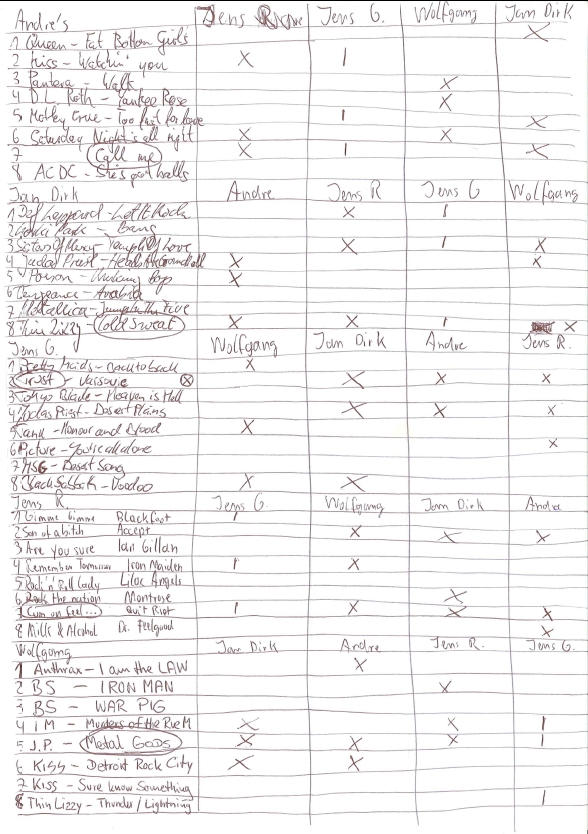 Andre's Jens R. Jens G. Wolfgang Jam Dirk
1 Queen - Fat Bottom Girls X
2 Kiss - Watchin' you X I
3 Pantera - Walk X
4 D.L. Roth - Yankee Rose X
5 Motley Crue - Too fast for love I X
6 Saturday Night's all right X X
7 Call me X I X
8 ACDC - She's got balls
Jam Dirk Andre Jens R Jens G Wolfgang
1 Def Leppard - Let It Rock X I
2 Park - Bang
3 Sisters Of Mercy - Temple Of Love X I X
4 Judas Priest - Heads X X
5 Poison - X
6 Vengeance - Arabia
7 Metallica - Jump In The Fire
8 Thin Lizzy - Cold Sweat X X I X
Jens G. Wolfgang Jam Dirk Andre Jens R.
1 Pretty Maids - Back to back X
2 X X X X
3 Tokyo Blade - Heaven is Hell
4 Judas Priest - Desert Plains X X X
5 - Honour and Blood X
6 Picture - You're all alone X
7 MSG - Desert Song
8 Black Sabbath - Voodoo X X
Jens R. Jens G. Wolfgang Jam Dirk Andre
1 Gimme Gimme Blackfoot I
2 Son of a bitch Accept X X X
3 Are you sure Ian Gillan
4 Remember Tomorrow Iron Maiden I X
5 Rock'n'Roll Lady Lilac Angels
6 Rock the nation Montrose X
7 Cum on feel... Quit Riot I X X X
8 Milk & Alcohol Dr. Feelgood X
Wolfgang Jam Dirk Andre Jens R. Jens G.
1 Anthrax - I am the LAW X
2 BS - IRON MAN X
3 BS - WAR PIG
4 IM - Murders of the Rue M X X I
5 J.P. - Metal Gods X X X I
6 KISS - Detroit Rock City X X
7 Kiss - Sure know Something
8 Thin Lizzy - Thunder/Lightning I